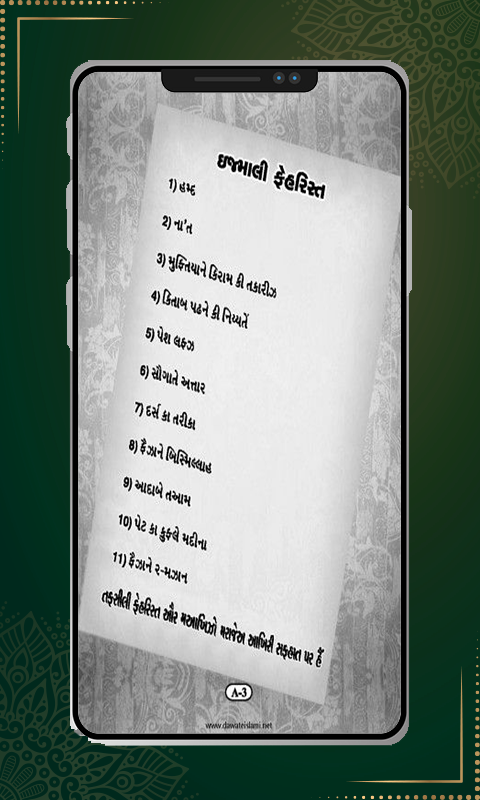 ઇજમાલી ફેહરિસ્ત
1) હમ્દ
2) ના'ત
3) મુફ્તિયાને કિરામ કી તકારીઝ
4) કિતાબ પઢને કી નિય્યતેં
5) પેશ લફ્ઝ
6) સૌગાતે અત્તાર
7) દર્સ કા તરીકા
8) ફૈઝાને બિસ્મિલ્લાહ
9) આદાબે તઆમ
10) પેટ કા કુફ્લે મદીના
11) ફૈઝાને ર-મઝાન
તફસીલી ફેહરિસ્ત ઔર મઆખિઝો મરાજેઅ આખિરી સફહાત પર હૈં
A-3
www.dawateislami.net